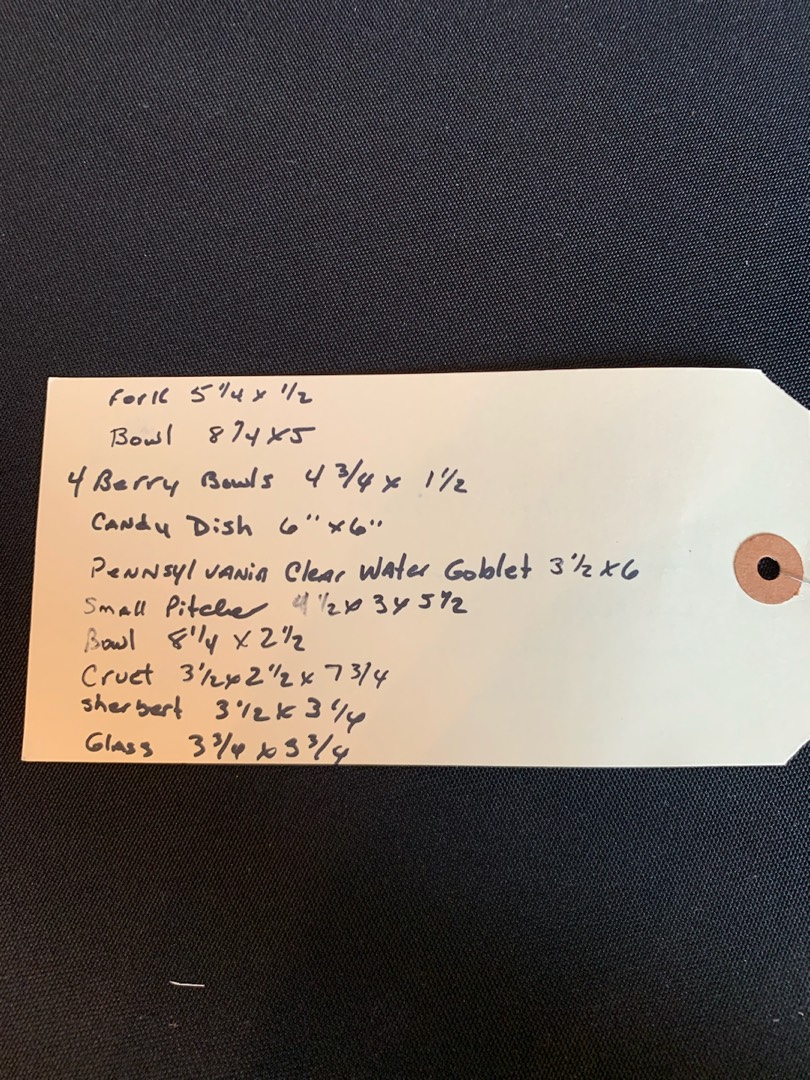 Fork 5 1/4 x 1/2
Bowl 8 1/4 x 5
4 Berry Bowls 4 3/4 x 1 1/2
Candy Dish 6" x 6"
Pennsylvania Clear Water Goblet 3 1/2 x 6
Small Pitcher 4 1/2 x 3 x 5 1/2
Bowl 8 1/4 x 2 1/2
Cruet 3 1/2 x 2 1/2 x 7 3/4
sherbert 3 1/2 x 3 1/4
Glass 3 3/4 x